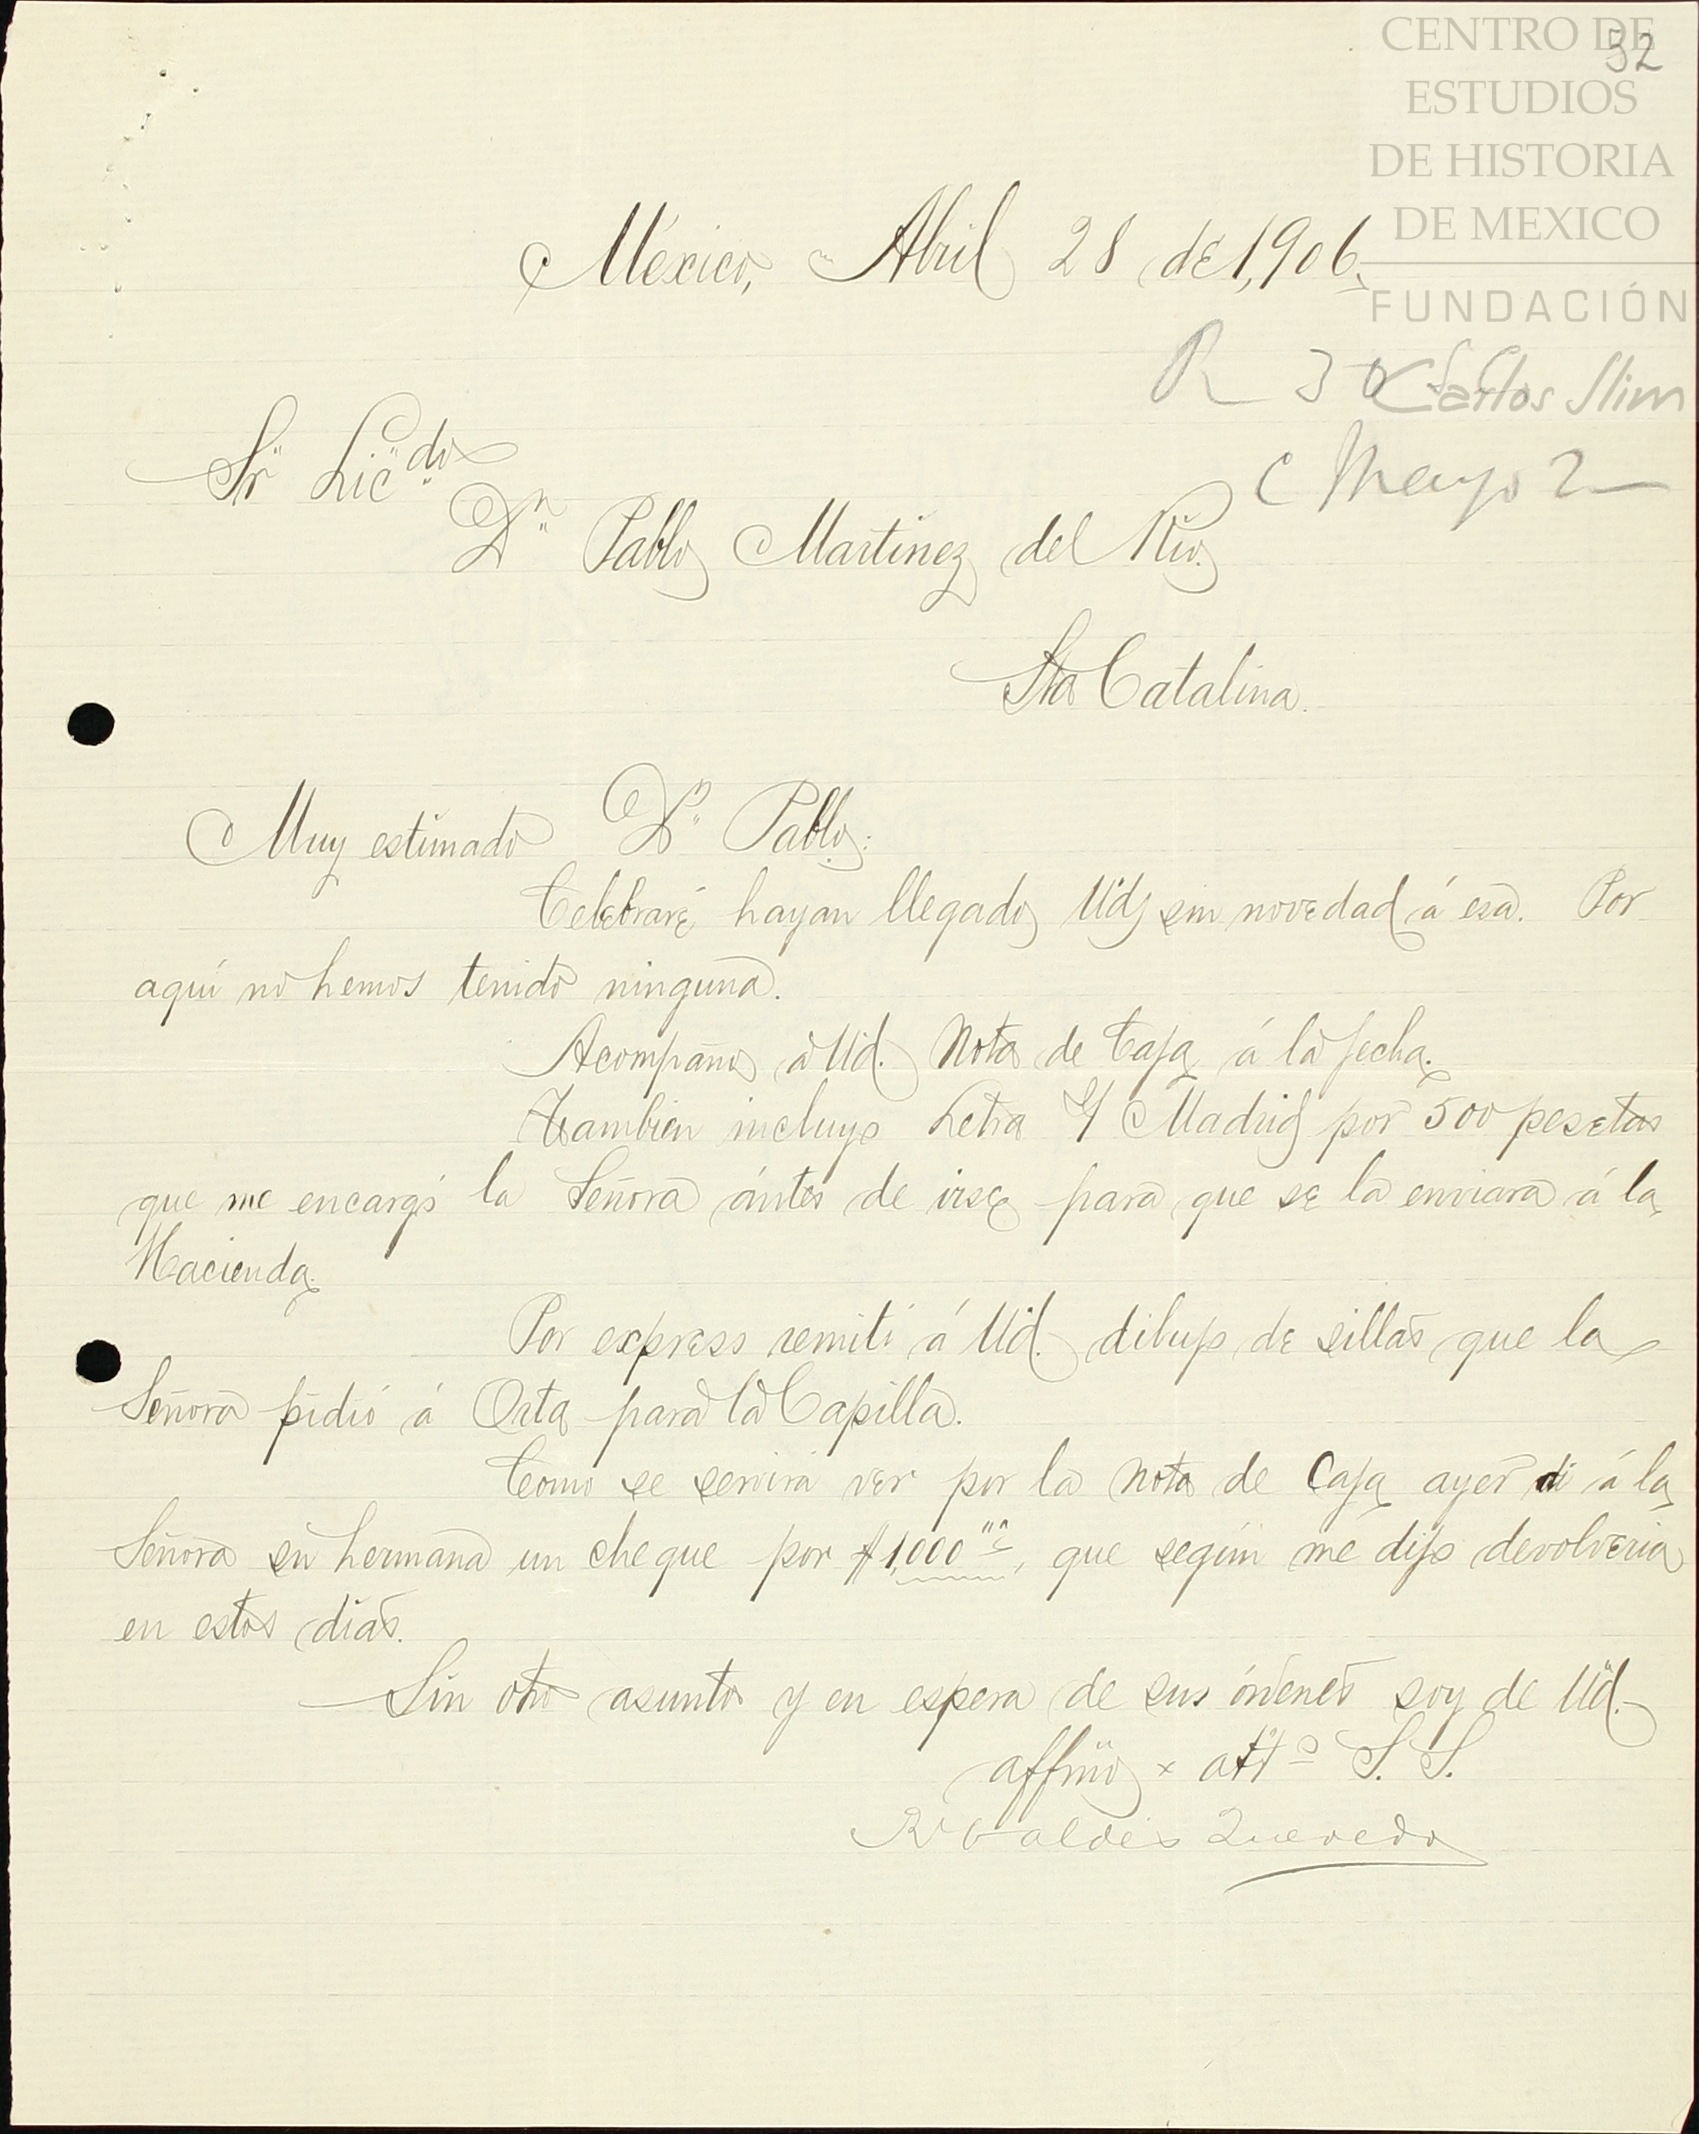 52
CENTRO DE
ESTUDIOS
DE HISTORIA
DE MEXICO
FUNDACIÓN
Carlos Slim
México, Abril 28 de 1,906.
R 30
C Mayo 2
Sr. Lic.do
Dn. Pablo Martinez del Rio.
Sta Catalina.
Muy estimado Dn. Pablo:
Celebraré hayan llegado Uds sin novedad á esa. Por
aquí no hemos tenido ninguna.
Acompaño á Ud. Nota de Caja á la fecha.
Tambien incluyo Letra s/ Madrid por 500 pesetas
que me encargó la Señora ántes de irse para que se la enviara á la
Hacienda.
Por express remití á Ud. dibujo de sillas que la
Señora pidió á Orta para la Capilla.
Como se servirá ver por la nota de Caja ayer di á la
Señora su hermana un cheque por $1,000, que según me dijo devolvería
en estos días.
Sin otro asunto y en espera de sus órdenes soy de Ud.
affmo y atto S. S.
Valdés Quevedo